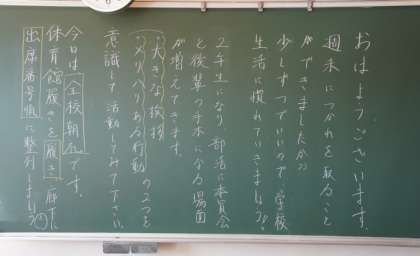 おはようございます。
週末につかれを取ること
ができましたか？
少しずつでいいので学校
生活に慣れていきましょう。
2年生になり、部活に委員会
と後輩の手本になる場面
が増えてきます。
・大きな挨拶
・メリハリある行動 の2つを
意識して活動してみて下さい。
今日は全校朝礼です。
体育館履きを履き、廊下に
出席番号順に整列しましょう